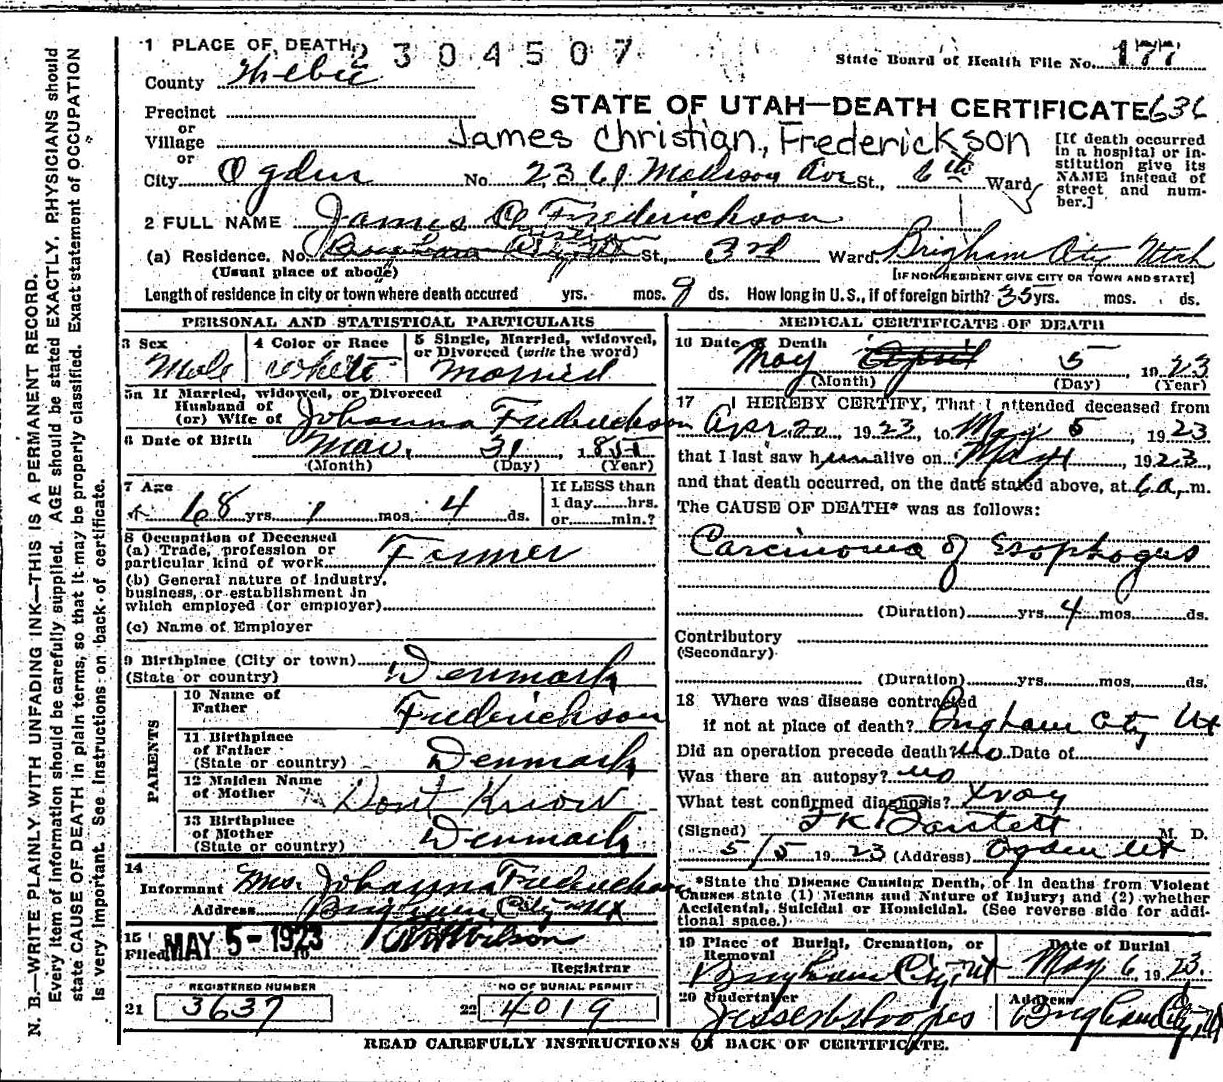 1 PLACE OF DEATH 2304507
State Board of Health File No. 177
County Webie
STATE OF UTAH—DEATH CERTIFICATE 636
Precinct
or
Village
or
James Christian, Frederickson
[If death occurred in a hospital or institution give its NAME instead of street and number.]
City Ogden No. 2361 Madison Ave St., 6th Ward
2 FULL NAME James C Frederickson
(a) Residence. No. St., 3rd Ward. Brigham City Utah
(Usual place of abode) [IF NON-RESIDENT GIVE CITY OR TOWN AND STATE]
Length of residence in city or town where death occured yrs. mos. 9 ds. How long in U.S., if of foreign birth? 35 yrs. mos. ds.
PERSONAL AND STATISTICAL PARTICULARS
3 Sex Male
4 Color or Race White
5 Single, Married, widowed, or Divorced (write the word) Married
5a If Married, widowed, or Divorced
Husband of
(or) Wife of Johanna Frederickson
6 Date of Birth Mar. 31, 1851
(Month) (Day) (Year)
7 Age 68 yrs. 1 mos. 4 ds.
If LESS than
1 day hrs.
or min.?
8 Occupation of Deceased
(a) Trade, profession or
particular kind of work Farmer
(b) General nature of industry,
business, or establishment in
which employed (or employer)
(c) Name of Employer
9 Birthplace (City or town)
(State or country) Denmark
PARENTS
10 Name of
Father Frederickson
11 Birthplace
of Father
(State or country) Denmark
12 Maiden Name
of Mother Dont Know
13 Birthplace
of Mother
(State or country) Denmark
14
Informant Mrs. Johanna Frederickson
Address Brigham City Ut
15
Filed MAY 5-1923 19 Wilson
Registrar
REGISTERED NUMBER
21 3637
NO OF BURIAL PERMIT
22 4019
MEDICAL CERTIFICATE OF DEATH
16 Date of Death May April 5 1923
(Month) (Day) (Year)
17 I HEREBY CERTIFY, That I attended deceased from
Apr 20, 1923, to May 5, 1923
that I last saw him alive on May 1923,
and that death occurred, on the date stated above, at 6 a. m.
The CAUSE OF DEATH* was as follows:
Carcinoma of Esophogus
(Duration) yrs. 4 mos. ds.
Contributory
(Secondary)
(Duration) yrs. mos. ds.
18 Where was disease contracted
if not at place of death? Brigham City Ut
Did an operation precede death? no Date of
Was there an autopsy? no
What test confirmed diagnosis? Xray
(Signed) Bartlett M. D.
5/5 1923 (Address) Ogden Ut
*State the Disease Causing Death, or in deaths from Violent
Causes state (1) Means and Nature of Injury; and (2) whether
Accidental, Suicidal or Homicidal. (See reverse side for addi-
tional space.)
19 Place of Burial, Cremation, or
Removal Brigham City, Ut
Date of Burial
May 6, 1923.
20 Undertaker
Address Brigham City, Ut
READ CAREFULLY INSTRUCTIONS ON BACK OF CERTIFICATE.
N. B.—WRITE PLAINLY WITH UNFADING INK—THIS IS A PERMANENT RECORD.
Every item of information should be carefully supplied. AGE should be stated EXACTLY. PHYSICIANS should
state CAUSE OF DEATH in plain terms, so that it may be properly classified. Exact statement of OCCUPATION
is very important. See instructions on back of certificate.